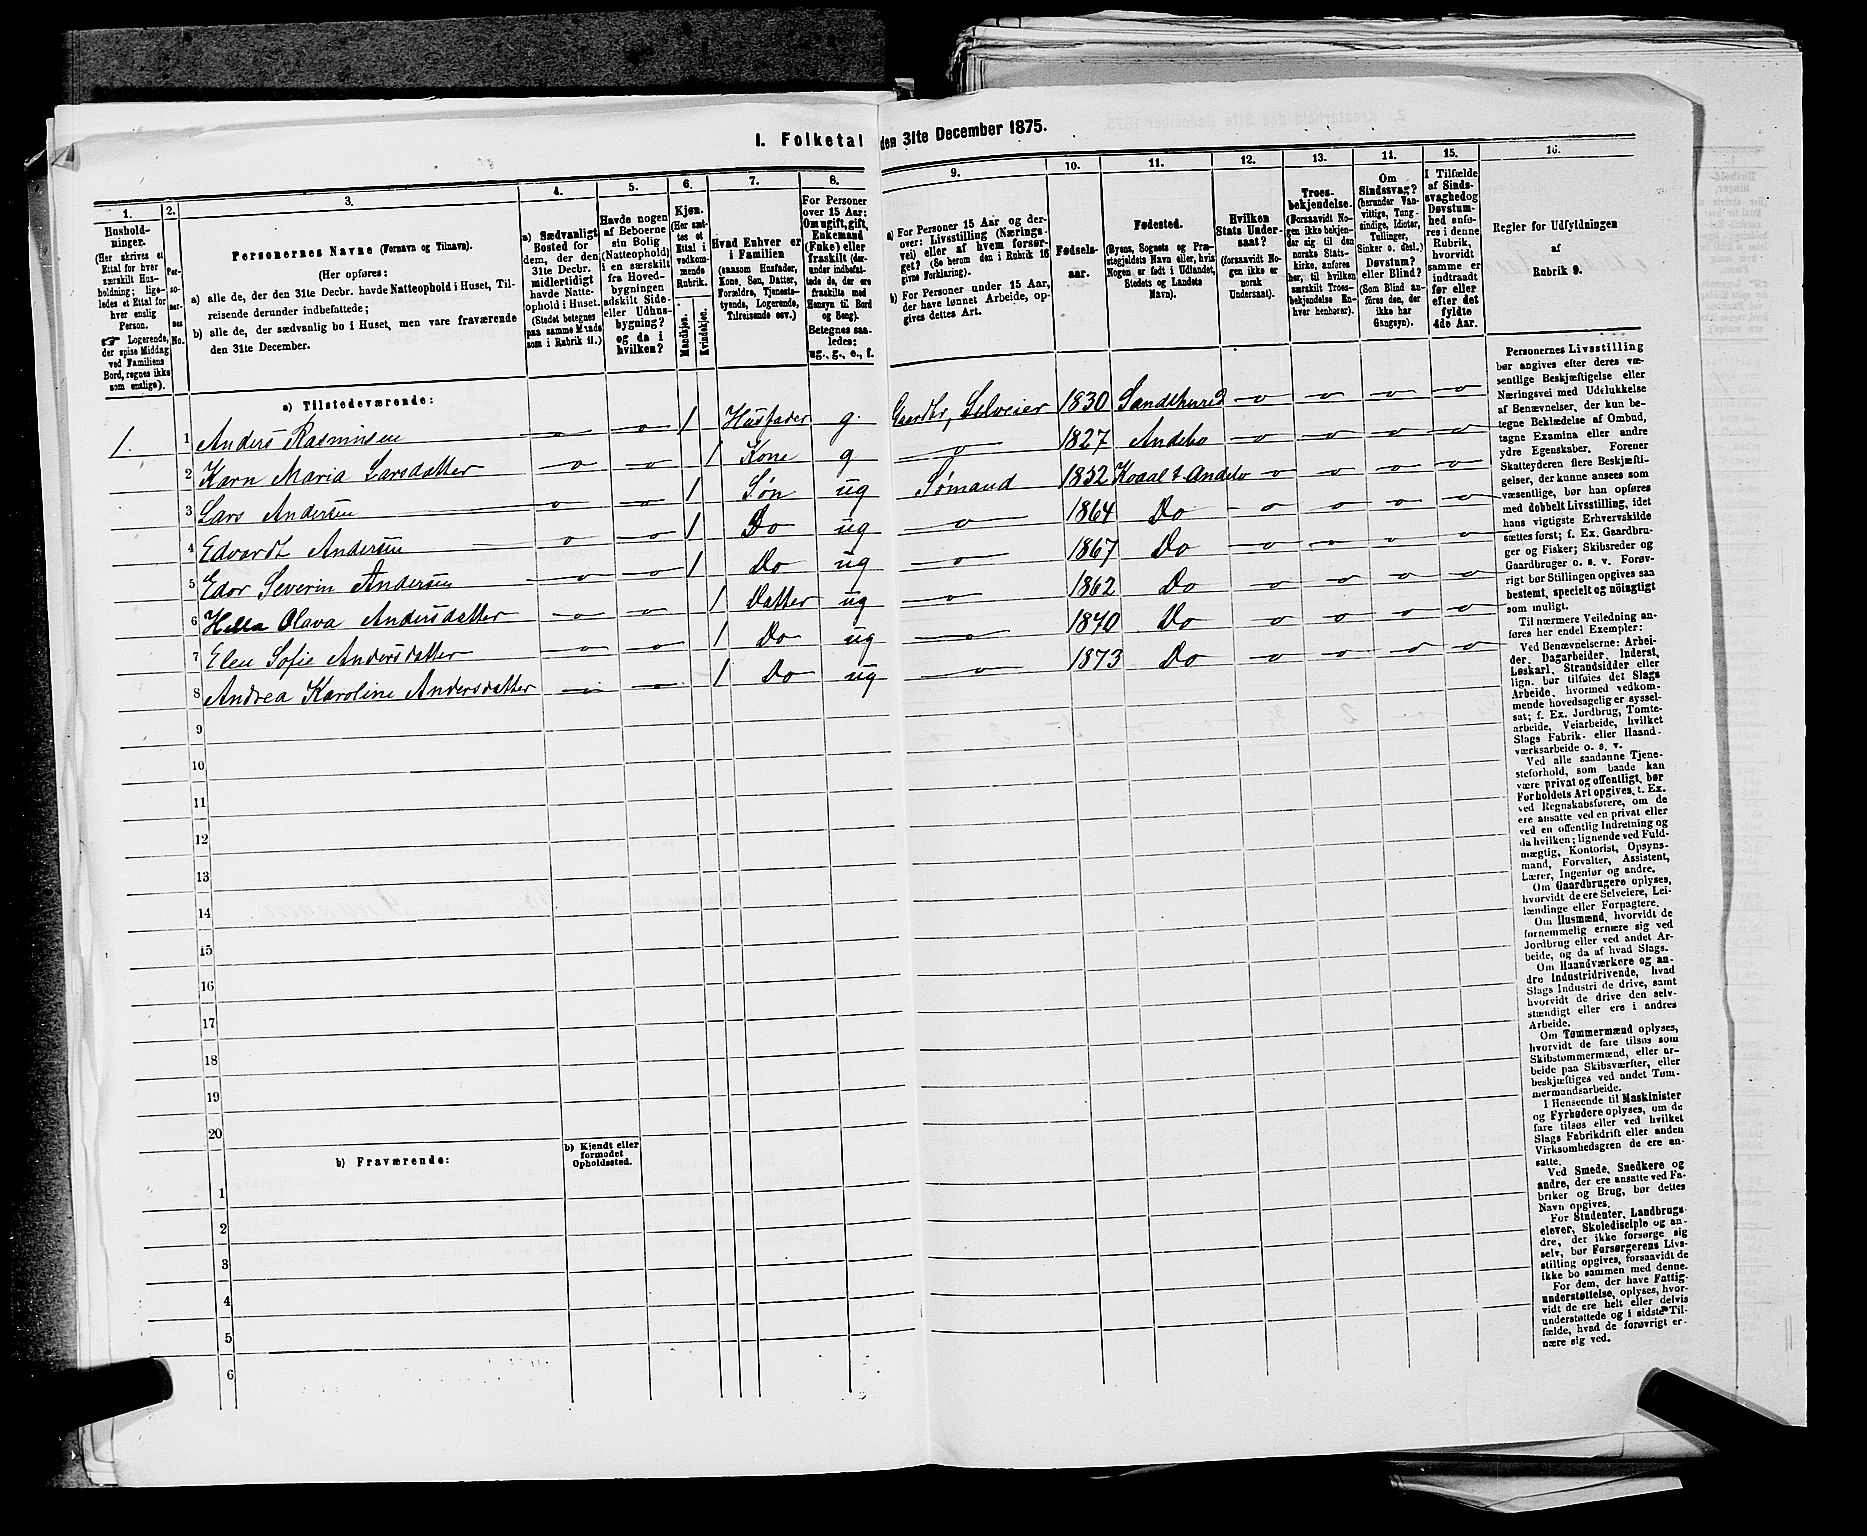 I. Folketal den 31te December 1875.
1. 2. 3. 4. 5. 6. 7. 8. 9. 10. 11. 12. 13. 14. 15. 16.
Husholdninger.
(Her skrives et
Ettal for hver
særskilt Husholdning;
ligeledes et Ettal for
hver enslig
Person.
☞ Logerende,
der spise Middag
ved Familiens
Bord, regnes ikke
som enslige).
Personernes No.
Personernes Navne (Fornavn og Tilnavn).
(Her opføres:
a) alle de, der den 31te Decbr. havde Natteophold i Huset, Tilreisende derunder indbefattede;
b) alle de, der sædvanlig bo i Huset, men vare fraværende
den 31te December.
a) Sædvanligt
Bosted for
dem, der den
31te Decbr.
midlertidigt
havde Natteophold
i Huset.
(Stedet betegnes
paa samme Maade
som i Rubrik 11.)
Havde nogen
af Beboerne
sin Bolig
(Natteophold)
i en særskilt
fra Hovedbygningen
adskilt Side-
eller Udhusbygning?
og da i
hvilken?
Kjøn.
(Her sættes
et
Ettal i
vedkommende
Rubrik.
Mandkjøn.
Kvindekjøn.
Hvad Enhver er
i Familien
(saasom Husfader,
Kone, Søn, Datter,
Forældre, Tjenestetyende,
Logerende,
Tilreisende osv.)
For Personer
over 15 Aar:
Om ugift, gift,
Enkemand
(Enke) eller
fraskilt (derunder
indbefattede
de, der ere
fraskilte med
Hensyn til Bord
og Seng).
Betegnes saaledes:
ug., g., e., f.
a) For Personer 15 Aar og derover:
Livsstilling (Næringsvei)
eller af hvem forsørget?
(Se herom den i Rubrik 16
givne Forklaring).
b) For Personer under 15 Aar,
der have lønnet Arbeide, opgives
dettes Art.
Fødselsaar.
Fødested.
(Byens, Sognets og Præstegjeldets
Navn eller, hvis
Nogen er født i Udlandet,
Stedets og Landets
Navn).
Hvilken
Stats Undersaat?
(foraavidt Nogen
ikke er
norsk
Undersaat).
Troesbekjendelse.
(Forsaavidt Nogen
ikke bekjender
sig til den
norske Statskirke,
anføres
her, til hvilken
særskilt Troesbekjendelse
Enhver
henhører).
Om
Sindssvag?
(herunder Vanvittige,
Tungsindige,
Idioter,
Tullinger,
Sinker o. desl.)
Døvstum?
eller Blind?
(Som Blind anføres
den, der
ikke har
Gangsyn).
I Tilfælde
af Sindssvaghed
og
Døvstumhed
anføres
i denne
Rubrik,
hvorvidt
samme er
indtraadt
før eller
efter det
fyldte
4de Aar.
Regler for Udfyldningen
af
Rubrik 9.
a) Tilstedeværende:
1. 1 Anders Rasmusen – o – – o – 1 Husfader g. Gaardbr, Selveier 1830 Sandeherred – o – – o – – o – – o –
2 Karn Maria Larsdatter – o – – o – 1 Kone g – o – 1827 Andebo – o – – o – – o – – o –
3 Lars Andersen – o – – o – 1 Søn ug Sømand 1852 Kvaal t Andebo – o – – o – – o – – o –
4 Edvardt Andersen – o – – o – 1 Do ug – o – 1864 Do – o – – o – – o – – o –
5 Edor Severin Andersen – o – – o – 1 Do ug – o – 1867 Do – o – – o – – o – – o –
6 Hella Olava Andersdatter – o – – o – 1 Datter ug – o – 1862 Do – o – – o – – o – – o –
7 Elen Sofie Andersdatter – o – – o – 1 Do ug – o – 1870 Do – o – – o – – o – – o –
8 Andrea Karoline Andersdatter – o – – o – 1 Do ug – o – 1873 Do – o – – o – – o – – o –
9
10
11
12
13
14
15
16
17
18
19
20
b) Fraværende:
b) Kjendt eller
formodet
Opholdssted.
1
2
3
4
5
6
Personernes Livsstilling
bør angives efter deres væsentlige
Beskjæftigelse eller
Næringsvei med Udelukkelse
af Benævnelser, der kun betegne
Beklædelse af Ombud,
tagne Examina eller andre
ydre Egenskaber. Forener
Skatteyderen flere Beskjæftigelser,
der kunne ansees som
væsentlige, bør han opføres
med dobbelt Livsstilling, idet
hans vigtigste Erhvervskilde
sættes først; f. Ex. Gaardbruger
og Fisker; Skibsreder og
Gaardbruger o. s. v. Forøvrigt
bør Stillingen opgives saa
bestemt, specielt og nöiagtigt
som muligt.
Til nærmere Veiledning anføres
her endel Exempler:
Ved Benævnelserne: Arbeider,
Dagarbeider, Inderst,
Løskarl, Strandsidder eller
lign. bør tilføies det Slags
Arbeide, hvormed vedkommende
hovedsagelig er sysselsat;
f. Ex. Jordbrug, Tomtearbeide,
Veiarbeide, hvilket
Slags Fabrik- eller Haandværksarbeide
o. s. v.
Ved alle saadanne Tjenesteforhold,
som baade kan
være privat og offentligt, bør
Forholdets Art opgives, t. Ex.
ved Regnskabsførere, om de
ere ansatte ved en privat eller
ved en offentlig Indretning og
da hvilken; lignende ved Fuldmægtig,
Kontorist, Opsynsmand,
Forvalter, Assistent,
Lærer, Ingeniør og andre.
Om Gaardbrugere oplyses,
hvorvidt de ere Selveiere, Leilændinge
eller Forpagtere.
Om Husmænd, hvorvidt de
fornemmelig ernære sig ved
Jordbrug eller ved andet Arbeide,
og da af hvad Slags.
Om Haandværkere og andre
Industridrivende, hvad
Slags Industri de drive, samt
hvorvidt de drive den selvstændigt
eller ere i andres
Arbeide.
Om Tømmermænd oplyses,
hvorvidt de fare tilsøs som
Skibstømmermænd, eller arbeide
paa Skibsværfter, eller
beskjæftiges ved andet Tømmermandsarbeide.
I Henseende til Maskinister
og Fyrbødere oplyses, om de
fare tilsøs eller ved hvilket
Slags Fabrikdrift eller anden
Virksomhedsgren de ere ansatte.
Ved Smede, Snedkere og
andre, der ere ansatte ved Fabriker
og Brug, bør dettes
Navn opgives.
For Studenter, Landbrugselever,
Skoledisciple og andre,
der ikke forsørge sig
selv, bør Forsørgerens Livsstilling
opgives, forsaavidt de
ikke bo sammen med denne.
For dem, der have Fattigunderstøttelse,
oplyses, hvorvidt
de ere helt eller delvis
understøttede og i sidste Tilfælde,
hvad de forøvrigt ernære
sig ved.